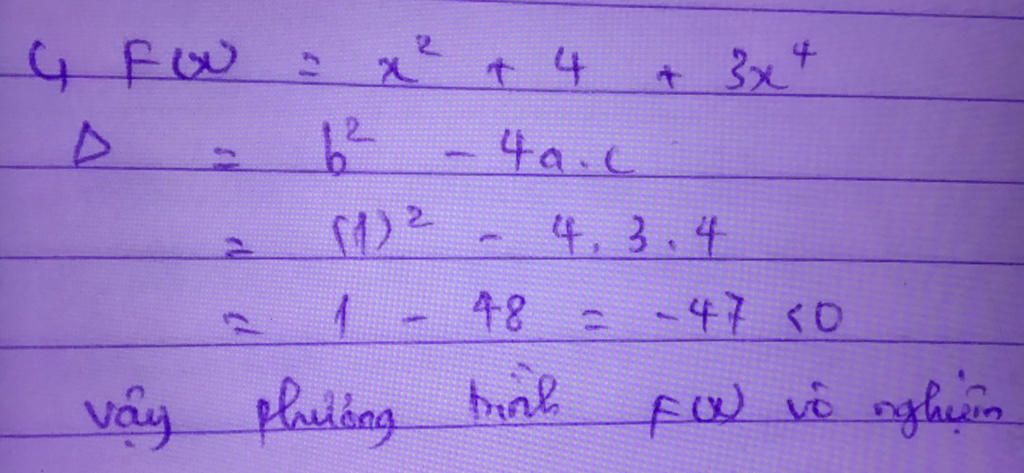 G, F(x) = x² + 4 + 3x⁴
Δ = b² - 4a.c
= (1)² - 4.3.4
= 1 - 48 = -47 <0
vậy phương trình F(x) vô nghiệm